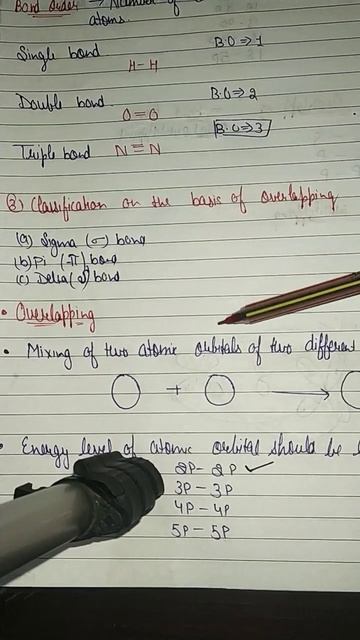 Bond order → Number of
atoms.
Single bond B.O ⇒ 1
H-H
Double bond B.O ⇒ 2
O=O
B.O ⇒ 3
Triple bond N≡N
(B) Classification on the basis of overlapping
(a) Sigma (σ) bond
(b) Pi (π) bond
(c) Delta (δ) bond
• Overlapping
• Mixing of two atomic orbitals of two different
+ →
• Energy level of atomic orbital should be
2P - 2P ✓
3P - 3P
4P - 4P
5P - 5P